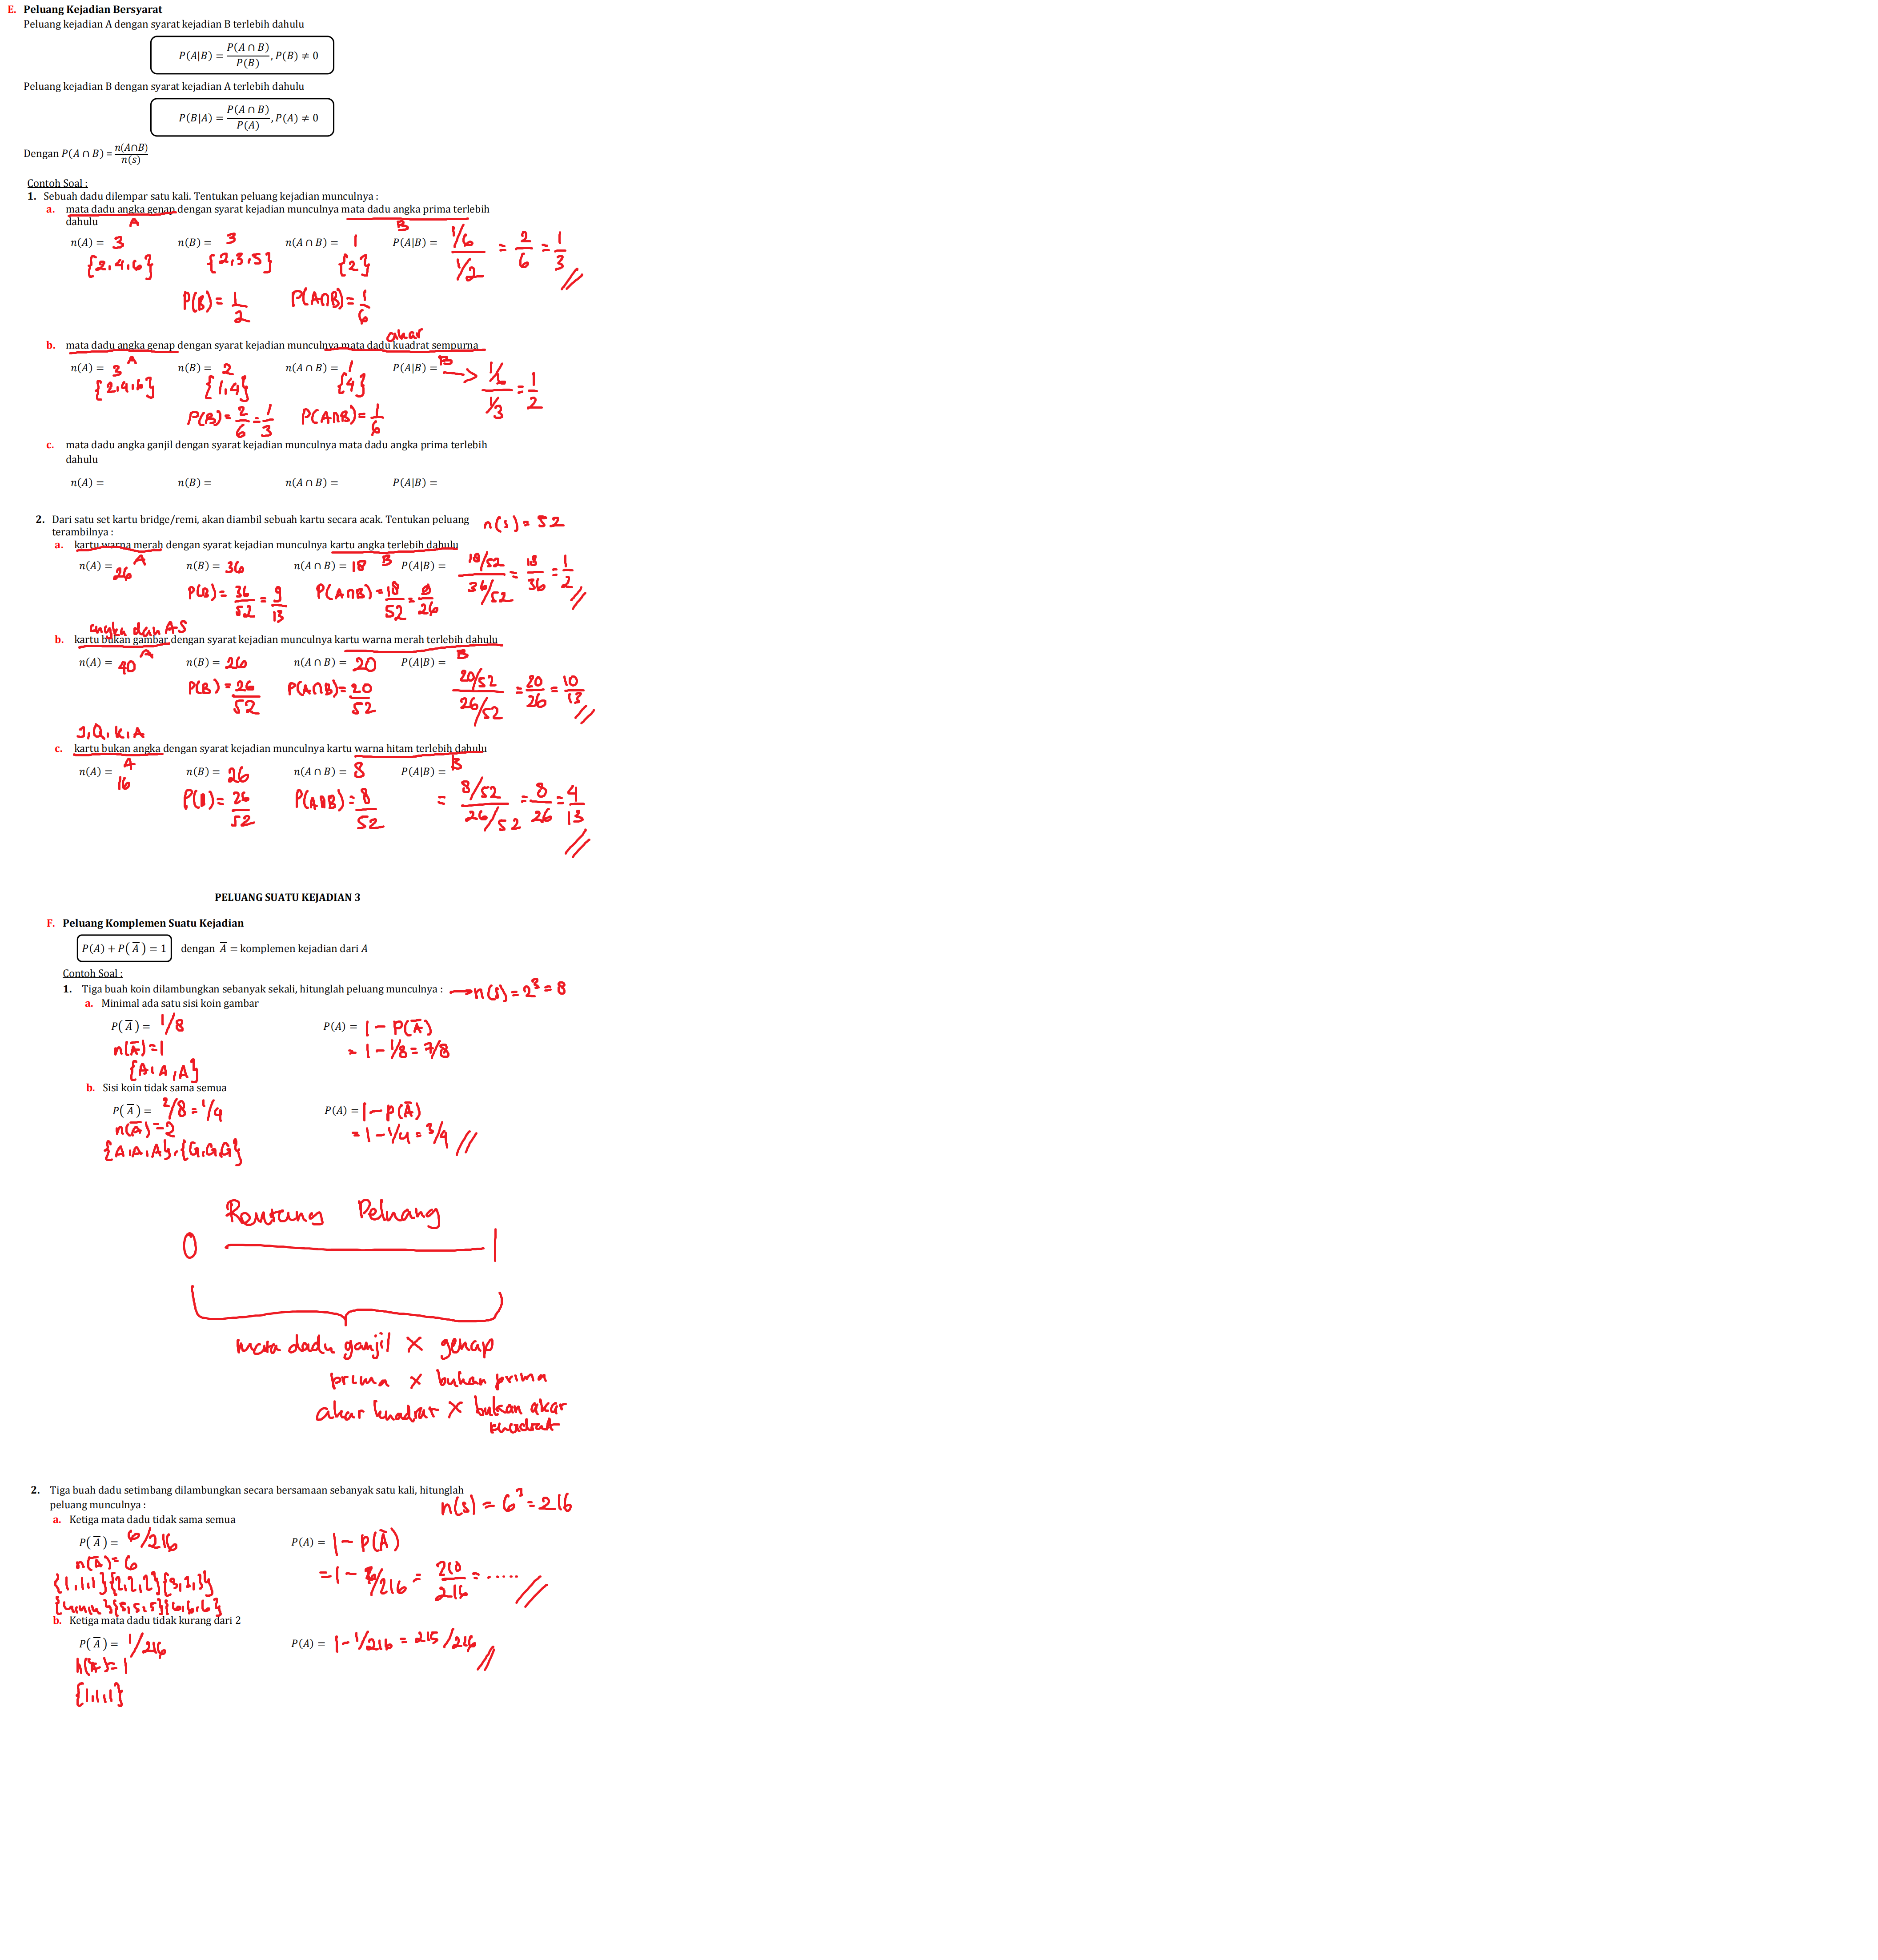 E. Peluang Kejadian Bersyarat
Peluang kejadian A dengan syarat kejadian B terlebih dahulu
P(A|B) = P(A ∩ B)/P(B), P(B) ≠ 0
Peluang kejadian B dengan syarat kejadian A terlebih dahulu
P(B|A) = P(A ∩ B)/P(A), P(A) ≠ 0
Dengan P(A ∩ B) = n(A∩B)/n(s)
Contoh Soal :
1. Sebuah dadu dilempar satu kali. Tentukan peluang kejadian munculnya :
a. mata dadu angka genap dengan syarat kejadian munculnya mata dadu angka prima terlebih
dahulu A B
n(A) = 3 n(B) = 3 n(A ∩ B) = 1 P(A|B) = 1/6 / 1/2 = 2/6 = 1/3
{2,4,6} {2,3,5} {2}
P(B) = 1/2 P(A∩B) = 1/6
akar
b. mata dadu angka genap dengan syarat kejadian munculnya mata dadu kuadrat sempurna
A B
n(A) = 3 n(B) = 2 n(A ∩ B) = 1 P(A|B) = → 1/6 / 1/3 = 1/2
{2,4,6} {1,4} {4}
P(B) = 2/6 = 1/3 P(A∩B) = 1/6
c. mata dadu angka ganjil dengan syarat kejadian munculnya mata dadu angka prima terlebih
dahulu
n(A) = n(B) = n(A ∩ B) = P(A|B) =
2. Dari satu set kartu bridge/remi, akan diambil sebuah kartu secara acak. Tentukan peluang n(s) = 52
terambilnya :
a. kartu warna merah dengan syarat kejadian munculnya kartu angka terlebih dahulu
A B
n(A) = 26 n(B) = 36 n(A ∩ B) = 18 P(A|B) = 18/52 / 36/52 = 18/36 = 1/2
P(B) = 36/52 = 9/13 P(A∩B) = 18/52 = /26
angka dan AS
b. kartu bukan gambar dengan syarat kejadian munculnya kartu warna merah terlebih dahulu
A B
n(A) = 40 n(B) = 26 n(A ∩ B) = 20 P(A|B) =
P(B) = 26/52 P(A∩B) = 20/52 20/52 / 26/52 = 20/26 = 10/13
J,Q,K,A
c. kartu bukan angka dengan syarat kejadian munculnya kartu warna hitam terlebih dahulu
A B
n(A) = 16 n(B) = 26 n(A ∩ B) = 8 P(A|B) =
P(B) = 26/52 P(A∩B) = 8/52 = 8/52 / 26/52 = 8/26 = 4/13
PELUANG SUATU KEJADIAN 3
F. Peluang Komplemen Suatu Kejadian
P(A) + P(A̅) = 1 dengan A̅ = komplemen kejadian dari A
Contoh Soal :
1. Tiga buah koin dilambungkan sebanyak sekali, hitunglah peluang munculnya : → n(s) = 2³ = 8
a. Minimal ada satu sisi koin gambar
P(A̅) = 1/8 P(A) = 1 - P(A̅)
n(A̅) = 1 = 1 - 1/8 = 7/8
{A,A,A}
b. Sisi koin tidak sama semua
P(A̅) = 2/8 = 1/4 P(A) = 1 - P(A̅)
n(A̅) = 2 = 1 - 1/4 = 3/4
{A,A,A},{G,G,G}
Rentang Peluang
0 1
mata dadu ganjil × genap
prima × bukan prima
akar kuadrat × bukan akar
kuadrat
2. Tiga buah dadu setimbang dilambungkan secara bersamaan sebanyak satu kali, hitunglah
peluang munculnya : n(s) = 6³ = 216
a. Ketiga mata dadu tidak sama semua
P(A̅) = 6/216 P(A) = 1 - P(A̅)
n(A̅) = 6 = 1 - 6/216 = 210/216 = .....
{1,1,1}{2,2,2}{3,3,3}
{4,4,4}{5,5,5}{6,6,6}
b. Ketiga mata dadu tidak kurang dari 2
P(A̅) = 1/216 P(A) = 1 - 1/216 = 215/216
n(A̅) = 1
{1,1,1}